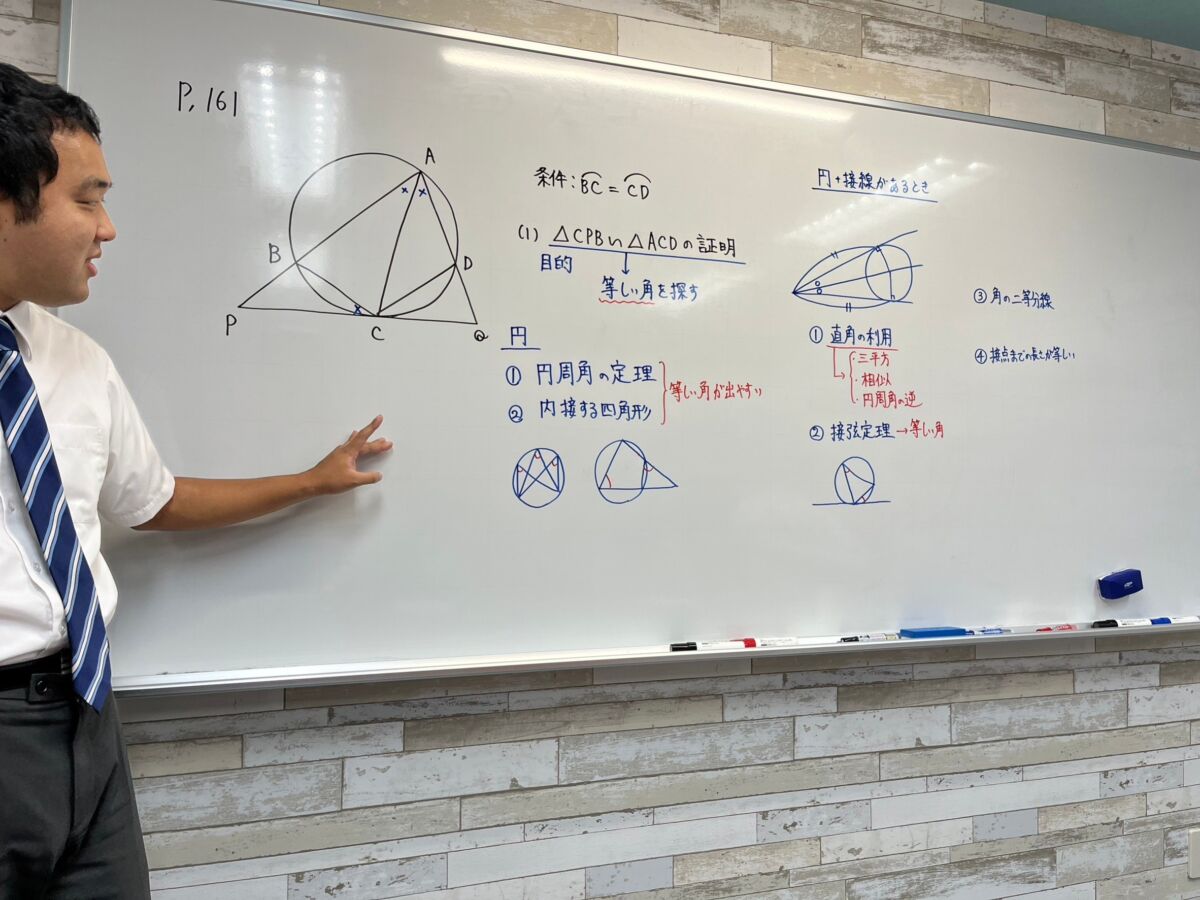 P, 161
A
B
D
P
C
Q
条件: BC = CD
(1) △CPB∽△ACDの証明
目的
等しい角を探す
円
① 円周角の定理
② 内接する四角形
等しい角が出やすい
円+接線があるとき
① 直角の利用
・三平方
・相似
・円周角の逆
② 接弦定理→等しい角
③ 角の二等分線
④ 接点までの長さが等しい